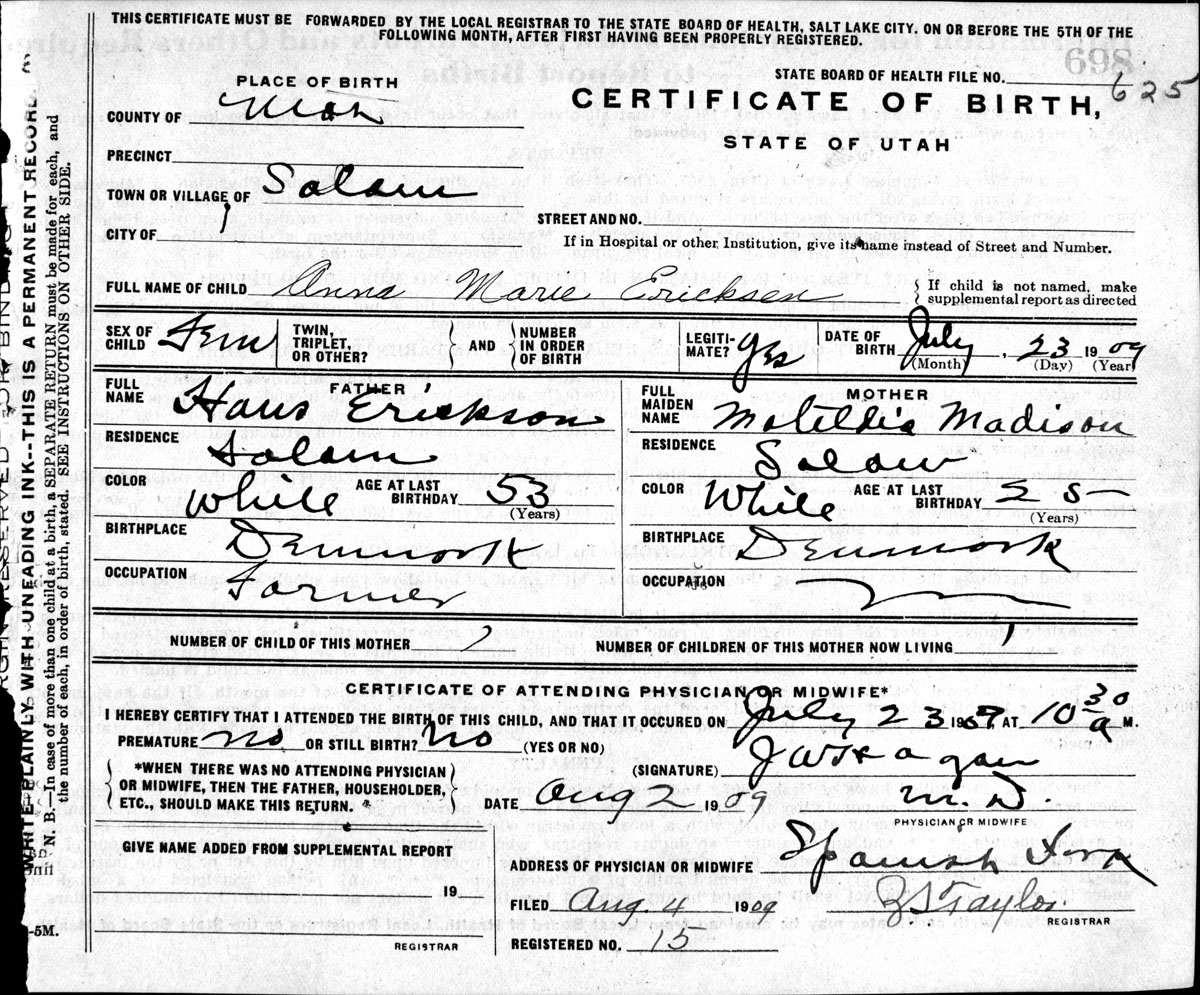 THIS CERTIFICATE MUST BE FORWARDED BY THE LOCAL REGISTRAR TO THE STATE BOARD OF HEALTH, SALT LAKE CITY. ON OR BEFORE THE 5TH OF THE
FOLLOWING MONTH, AFTER FIRST HAVING BEEN PROPERLY REGISTERED.
PLACE OF BIRTH
STATE BOARD OF HEALTH FILE NO. 625
COUNTY OF Utah
CERTIFICATE OF BIRTH,
STATE OF UTAH
PRECINCT
TOWN OR VILLAGE OF Salem
STREET AND NO.
CITY OF
If in Hospital or other Institution, give its name instead of Street and Number.
FULL NAME OF CHILD Anna Marie Ericksen
{ If child is not named, make
supplemental report as directed
SEX OF CHILD Fem
TWIN, TRIPLET, OR OTHER? } AND { NUMBER IN ORDER OF BIRTH
LEGITI-MATE? yes
DATE OF BIRTH July 23 1909
(Month) (Day) (Year)
FATHER
FULL NAME Hans Erickson
RESIDENCE Salem
COLOR White AGE AT LAST BIRTHDAY 53
(Years)
BIRTHPLACE Denmark
OCCUPATION Farmer
MOTHER
FULL MAIDEN NAME Matildia Madison
RESIDENCE Salem
COLOR White AGE AT LAST BIRTHDAY
(Years)
BIRTHPLACE Denmark
OCCUPATION
NUMBER OF CHILD OF THIS MOTHER 2 NUMBER OF CHILDREN OF THIS MOTHER NOW LIVING 1
CERTIFICATE OF ATTENDING PHYSICIAN OR MIDWIFE*
I HEREBY CERTIFY THAT I ATTENDED THE BIRTH OF THIS CHILD, AND THAT IT OCCURED ON July 23 190 AT 10 30 a M.
PREMATURE no OR STILL BIRTH? no (YES OR NO)
{ *WHEN THERE WAS NO ATTENDING PHYSICIAN
OR MIDWIFE, THEN THE FATHER, HOUSEHOLDER,
ETC., SHOULD MAKE THIS RETURN. }
(SIGNATURE) J W Hagan
DATE Aug 2 1909 M. D.
PHYSICIAN OR MIDWIFE
GIVE NAME ADDED FROM SUPPLEMENTAL REPORT
19
REGISTRAR
ADDRESS OF PHYSICIAN OR MIDWIFE Spanish Fork
FILED Aug. 4 1909 Taylor
REGISTRAR
REGISTERED NO. 15
WRITE PLAINLY WITH UNFADING INK--THIS IS A PERMANENT RECORD.
N. B.—In case of more than one child at a birth, a SEPARATE RETURN must be made for each, and
the number of each, in order of birth, stated. SEE INSTRUCTIONS ON OTHER SIDE.
-5M.